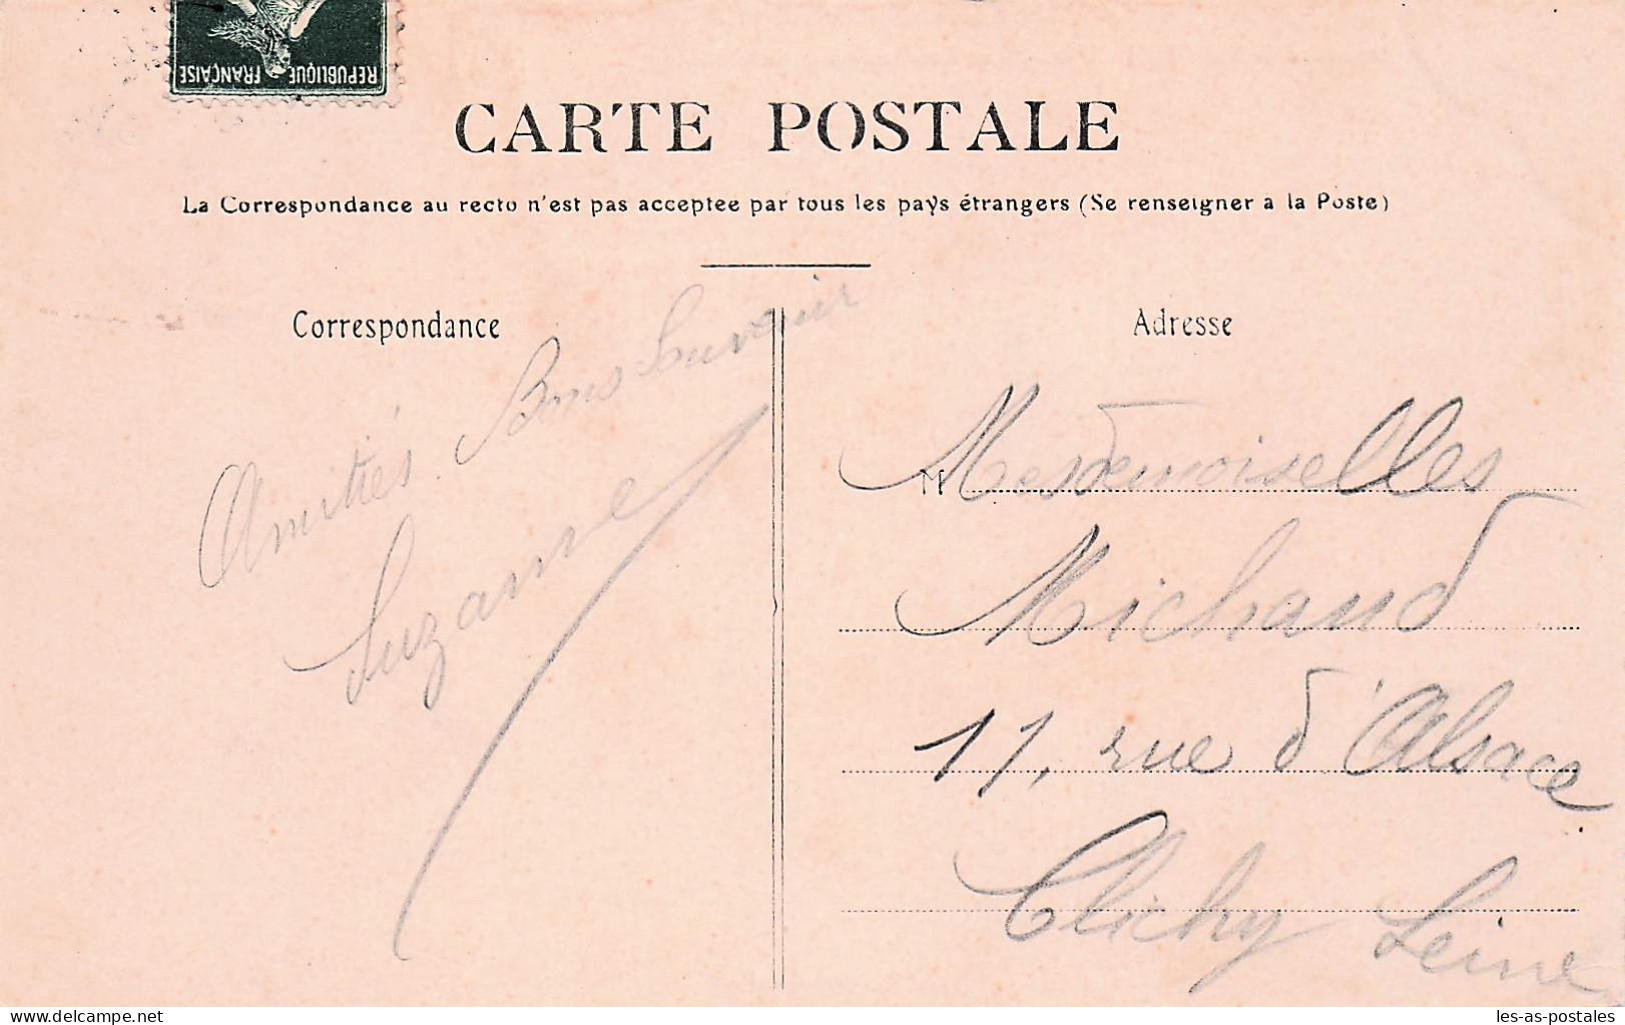 REPUBLIQUE FRANÇAISE
CARTE POSTALE
La Correspondance au recto n'est pas acceptee par tous les pays étrangers (Se renseigner a la Poste)
Correspondance
Amitiés. Bons Souvenir
Suzanne
Adresse
M Mesdemoiselles
Michaud
11, rue d'Alsace
Clichy Seine
www.delcampe.net
les-as-postales